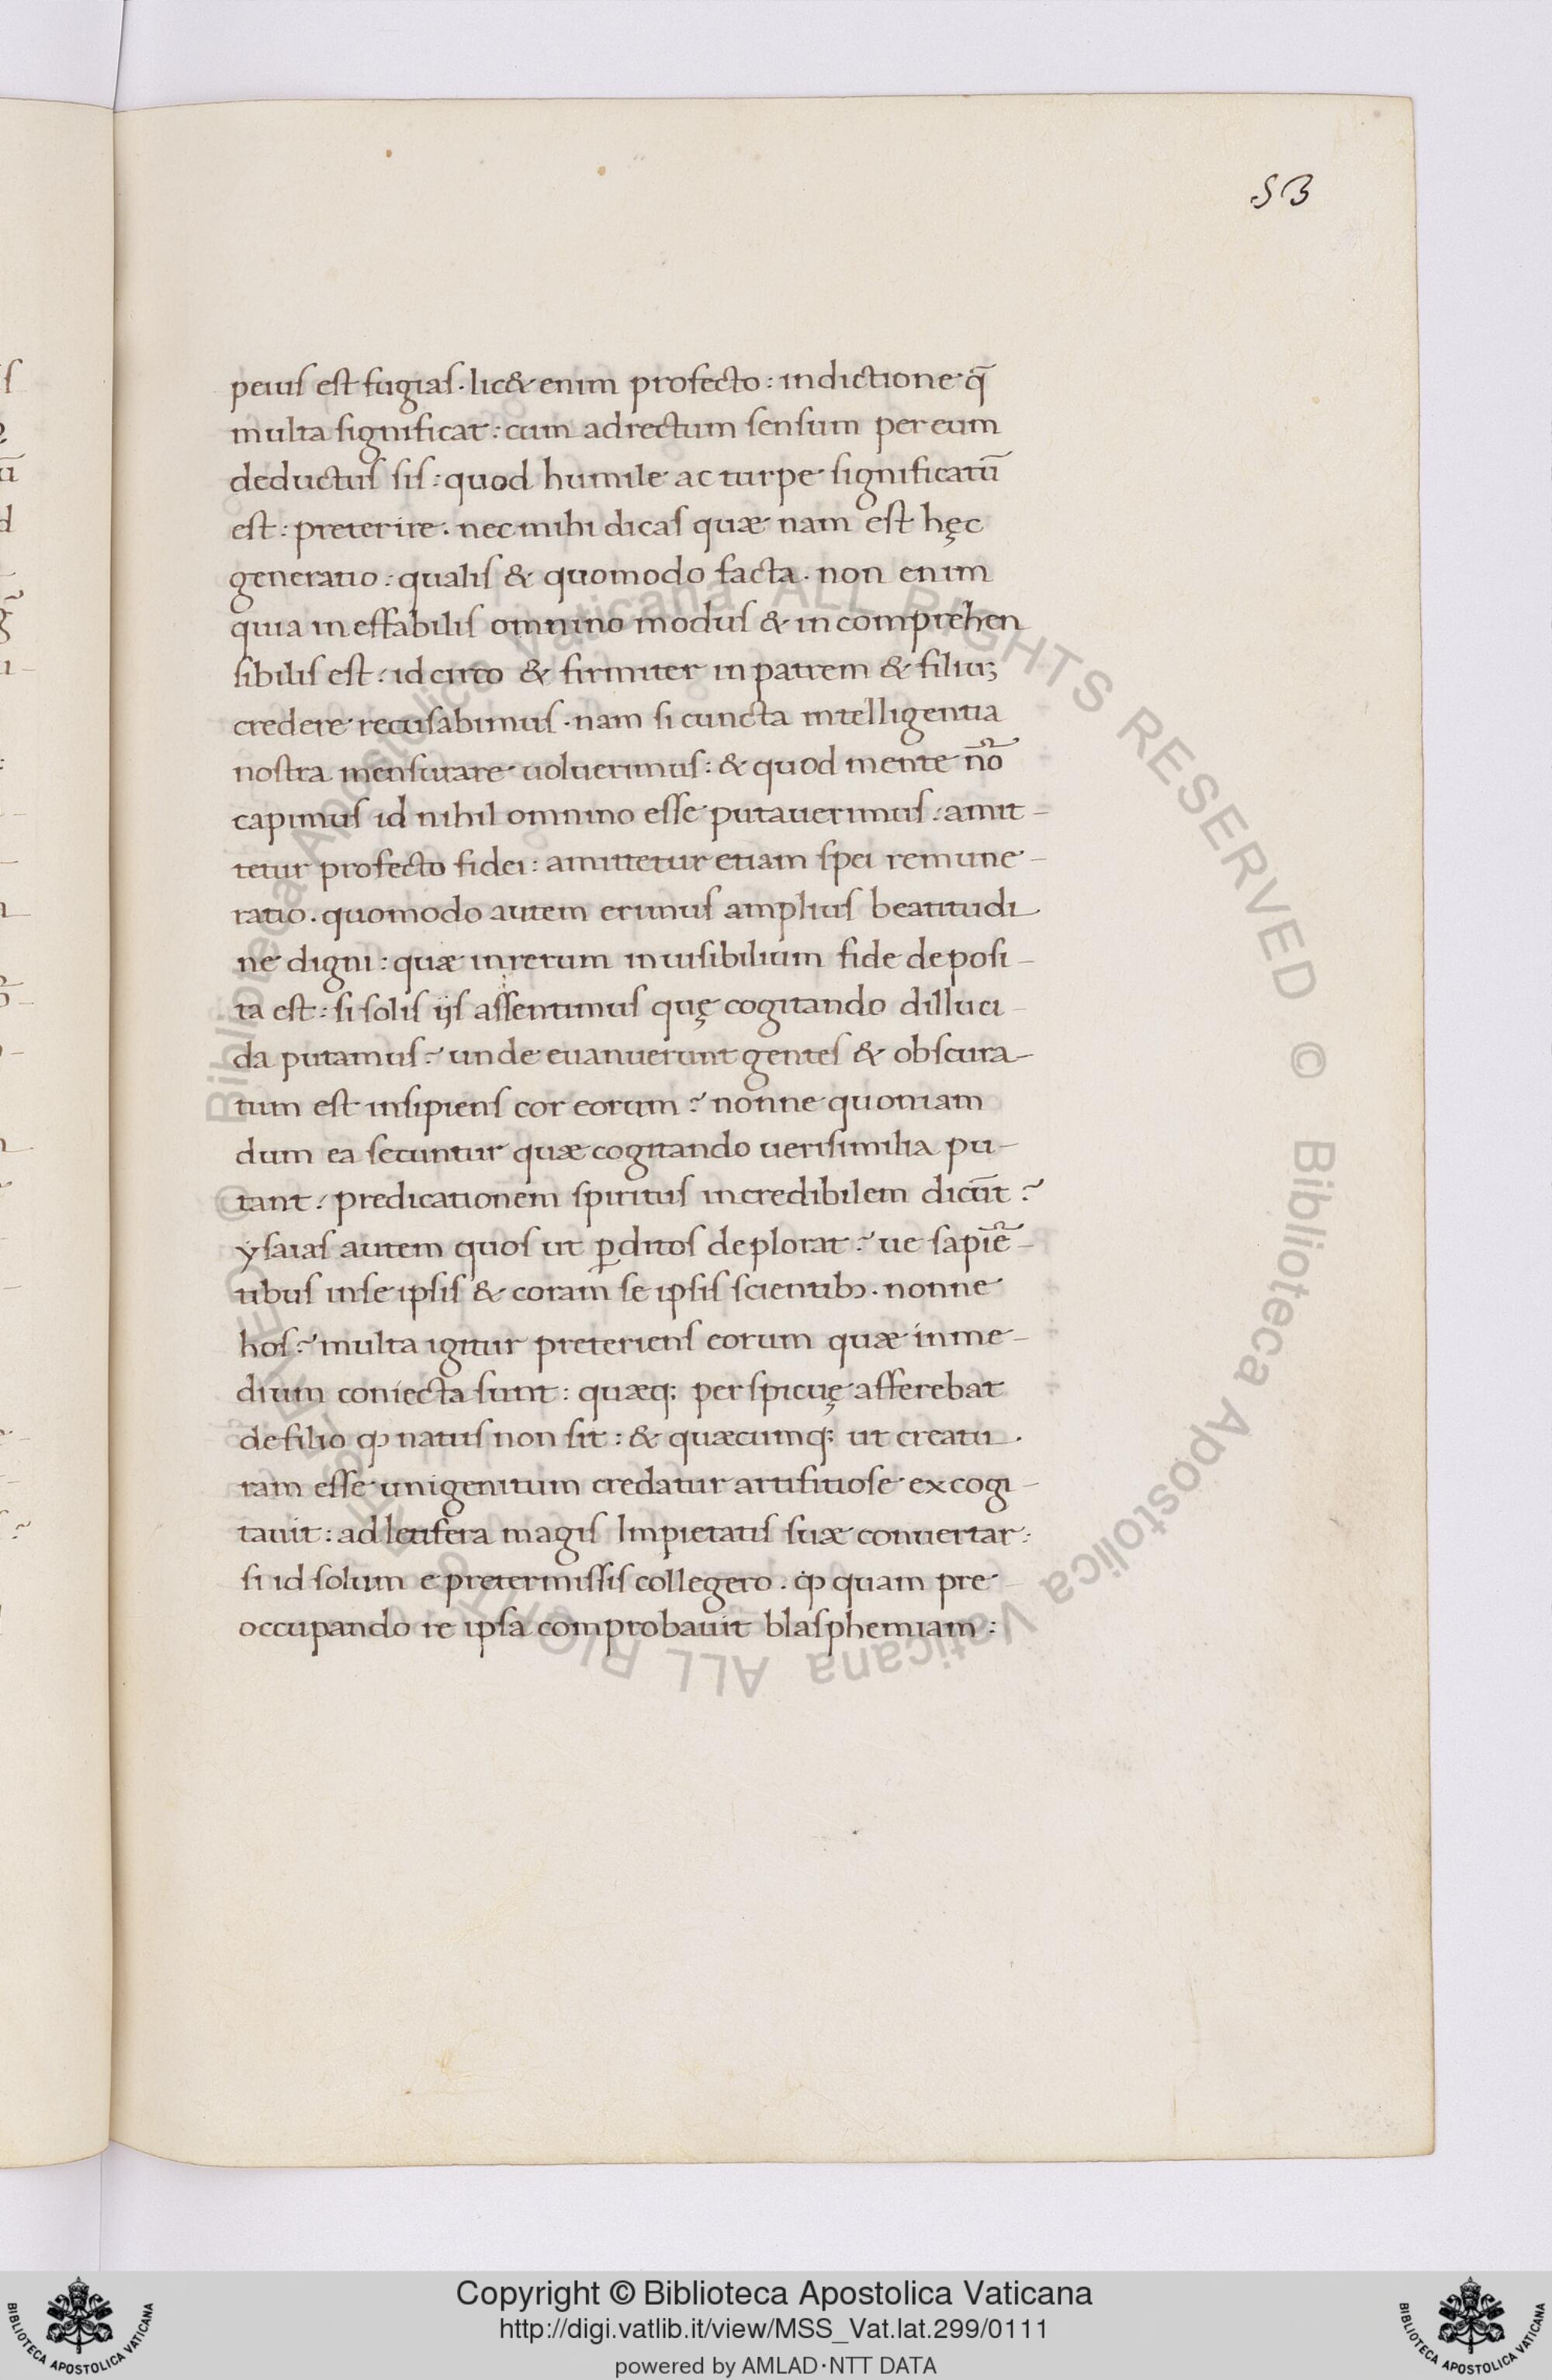 53
peius est fugias. lic& enim profecto: in dictione q̄
multa significat: cum ad rectum sensum per eum
deductus sis: quod humile ac turpe significatū
est: preterire. nec mihi dicas quæ nam est hęc
generatio: qualis & quomodo facta. non enim
quia ineffabilis omnino modus & incomprehen
sibilis est: idcirco & firmiter in patrem & filiuꝫ
credere recusabimus. nam si cuncta intelligentia
nostra mensurare uoluerimus: & quod mente nō
capimus id nihil omnino esse putauerimus: amit-
tetur profecto fidei: amittetur etiam spei remune-
ratio. quomodo autem erimus amplius beatitudi
ne digni: quæ in rerum inuisibilium fide deposi-
ta est: si solis ijs assentimus quę cogitando dilluci-
da putamus? unde euanuerunt gentes & obscura-
tum est insipiens cor eorum? nonne quoniam
dum ea secuntur quæ cogitando uerisimilia pu-
tant: predicationem spiritus incredibilem dicūt?
ysaias autem quos ut ꝑditos deplorat? ue sapiē-
tibus in se ipsis & coram se ipsis scientibꝫ. nonne
hos? multa igitur preteriens eorum quæ in me-
dium coniecta sunt: quæq; perspicuę afferebat
de filio ꝙ natus non sit: & quæcumq; ut creatu
ram esse unigenitum credatur artifitiose excogi-
tauit: ad letifera magis Impietatis suæ conuertar:
si id solum e pretermissis collegero. ꝙ quam pre
occupando re ipsa comprobauit blasphemiam:
© Biblioteca Apostolica Vaticana ALL RIGHTS RESERVED © Biblioteca Apostolica Vaticana ALL RIGHTS RESERVED
Copyright © Biblioteca Apostolica Vaticana
http://digi.vatlib.it/view/MSS_Vat.lat.299/0111
powered by AMLAD·NTT DATA
BIBLIOTECA APOSTOLICA VATICANA
BIBLIOTECA APOSTOLICA VATICANA